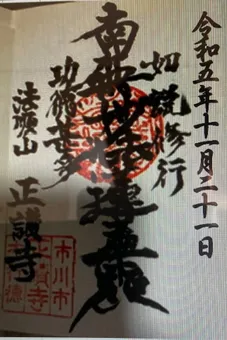 令和五年十一月二十一日
如説修行
南無妙法蓮華経
功徳甚多
法順山 正讃寺
市川市